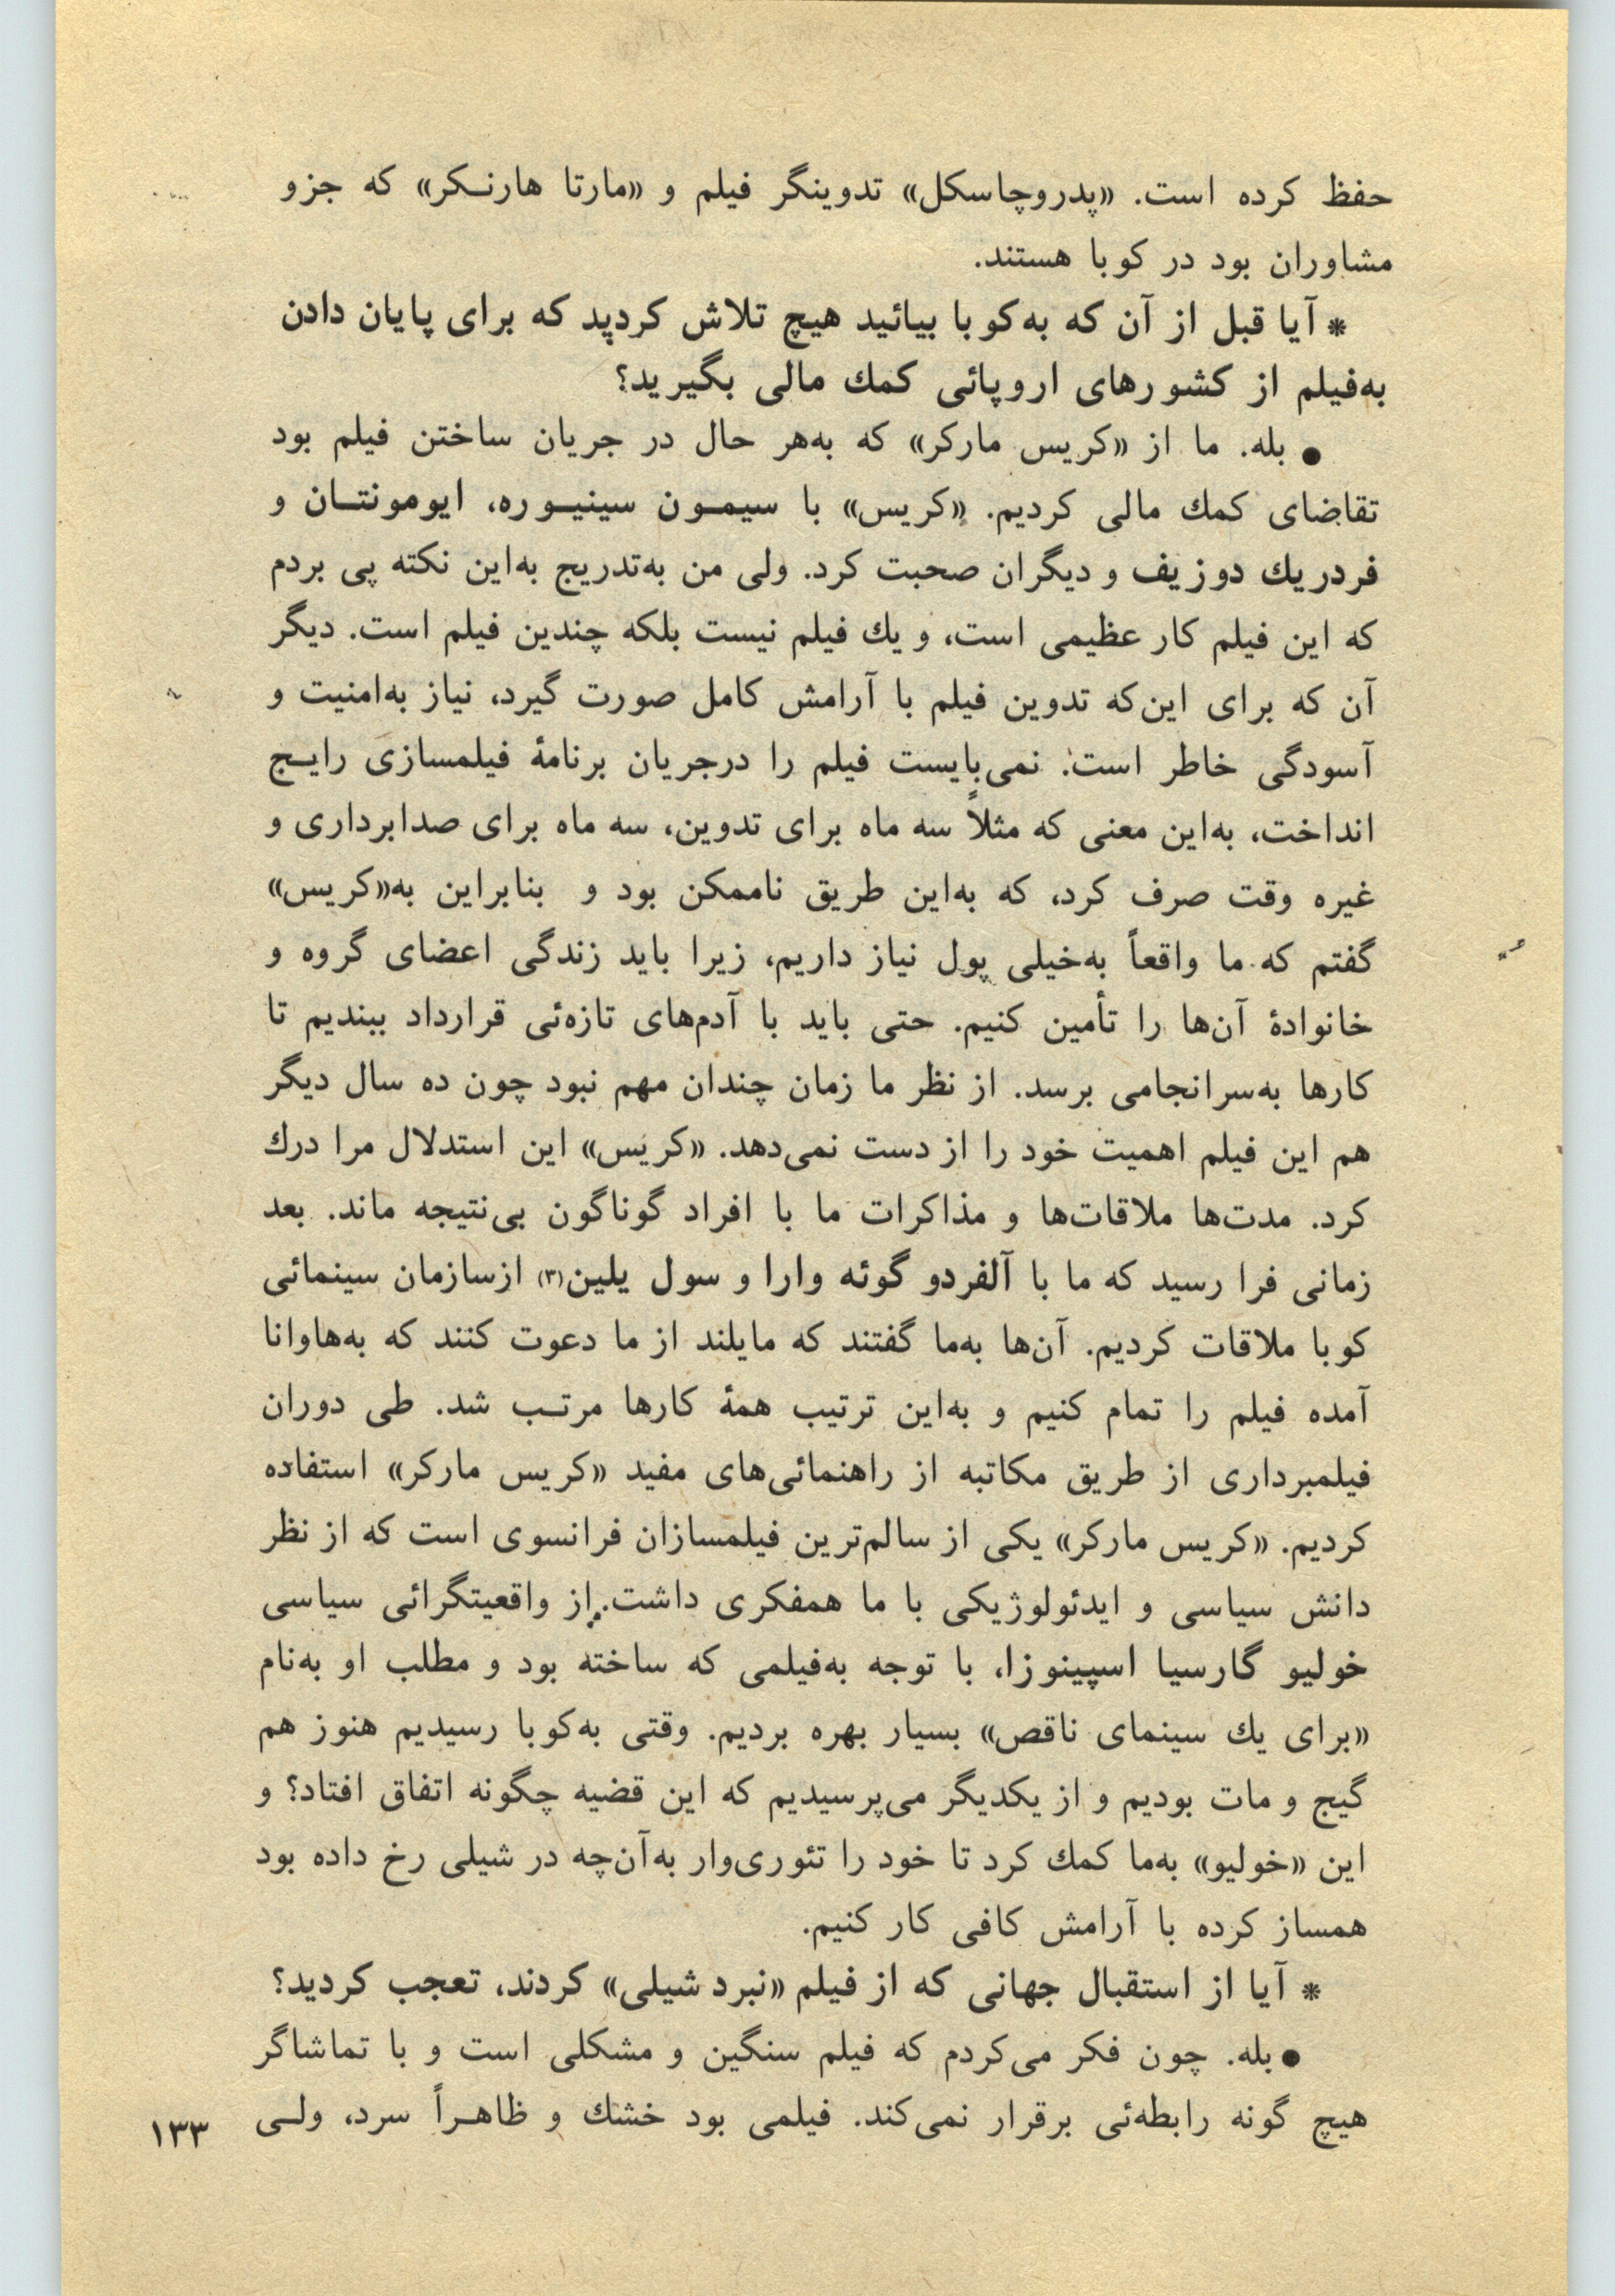 حفظ کرده است. «پدروچاسکل» تدوینگر فیلم و «مارتا هارنـکر» که جزو
مشاوران بود در کوبا هستند.
* آیا قبل از آن که به‌کوبا بیائید هیچ تلاش کردید که برای پایان دادن
به‌فیلم از کشورهای اروپائی کمك مالی بگیرید؟
● بله. ما از «کریس مارکر» که به‌هر حال در جریان ساختن فیلم بود
تقاضای کمك مالی کردیم. «کریس» با سیمـون سینیـوره، ایومونتـان و
فردریك دوزیف و دیگران صحبت کرد. ولی من به‌تدریج به‌این نکته پی بردم
که این فیلم کار عظیمی است، و یك فیلم نیست بلکه چندین فیلم است. دیگر
آن که برای این‌که تدوین فیلم با آرامش کامل صورت گیرد، نیاز به‌امنیت و
آسودگی خاطر است. نمی‌بایست فیلم را درجریان برنامهٔ فیلمسازی رایـج
انداخت، به‌این معنی که مثلاً سه ماه برای تدوین، سه ماه برای صدابرداری و
غیره وقت صرف کرد، که به‌این طریق ناممکن بود و بنابراین به«کریس»
گفتم که ما واقعاً به‌خیلی پول نیاز داریم، زیرا باید زندگی اعضای گروه و
خانوادهٔ آن‌ها را تأمین کنیم. حتی باید با آدم‌های تازه‌ئی قرارداد ببندیم تا
کارها به‌سرانجامی برسد. از نظر ما زمان چندان مهم نبود چون ده سال دیگر
هم این فیلم اهمیت خود را از دست نمی‌دهد. «کریس» این استدلال مرا درك
کرد. مدت‌ها ملاقات‌ها و مذاکرات ما با افراد گوناگون بی‌نتیجه ماند. بعد
زمانی فرا رسید که ما با آلفردو گوئه وارا و سول یلین(۳) ازسازمان سینمائی
کوبا ملاقات کردیم. آن‌ها به‌ما گفتند که مایلند از ما دعوت کنند که به‌هاوانا
آمده فیلم را تمام کنیم و به‌این ترتیب همهٔ کارها مرتـب شد. طی دوران
فیلمبرداری از طریق مکاتبه از راهنمائی‌های مفید «کریس مارکر» استفاده
کردیم. «کریس مارکر» یکی از سالم‌ترین فیلمسازان فرانسوی است که از نظر
دانش سیاسی و ایدئولوژیکی با ما همفکری داشت. از واقعیتگرائی سیاسی
خولیو گارسیا اسپینوزا، با توجه به‌فیلمی که ساخته بود و مطلب او به‌نام
«برای یك سینمای ناقص» بسیار بهره بردیم. وقتی به‌کوبا رسیدیم هنوز هم
گیج و مات بودیم و از یکدیگر می‌پرسیدیم که این قضیه چگونه اتفاق افتاد؟ و
این «خولیو» به‌ما کمك کرد تا خود را تئوری‌وار به‌آن‌چه در شیلی رخ داده بود
همساز کرده با آرامش کافی کار کنیم.
* آیا از استقبال جهانی که از فیلم «نبرد شیلی» کردند، تعجب کردید؟
● بله. چون فکر می‌کردم که فیلم سنگین و مشکلی است و با تماشاگر
هیچ گونه رابطه‌ئی برقرار نمی‌کند. فیلمی بود خشك و ظاهـراً سرد، ولـی
۱۳۳